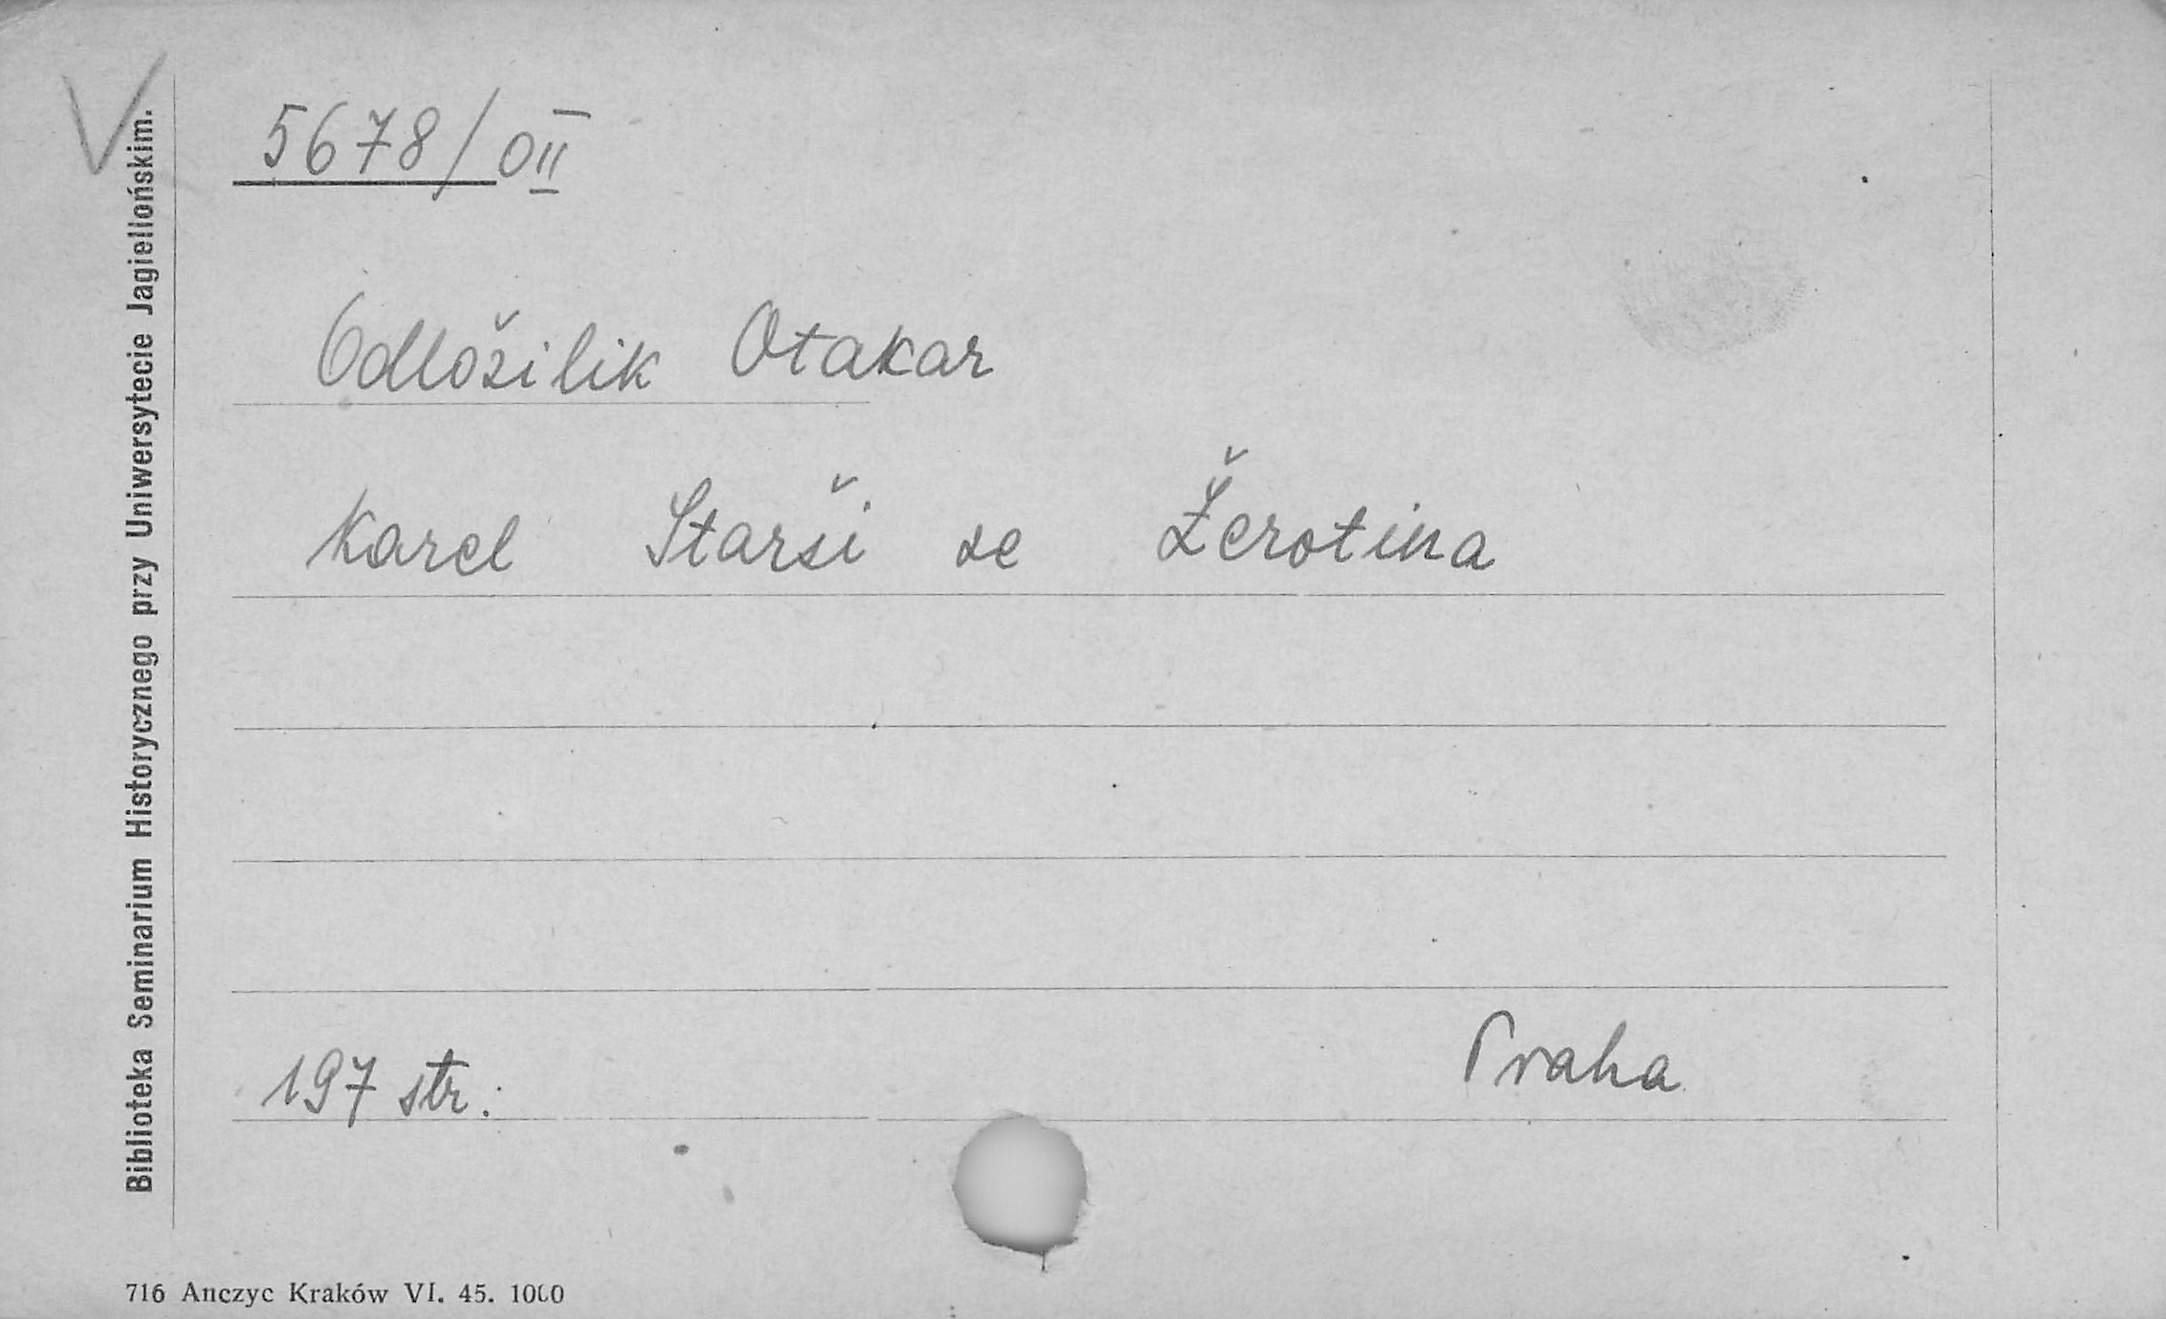 5678/OII
Odložilik Otakar
Karel Starši se Žerotina
197 str.
Praha
Biblioteka Seminarium Historycznego przy Uniwersytecie Jagiellońskim.
716 Anczyc Kraków VI. 45. 1000